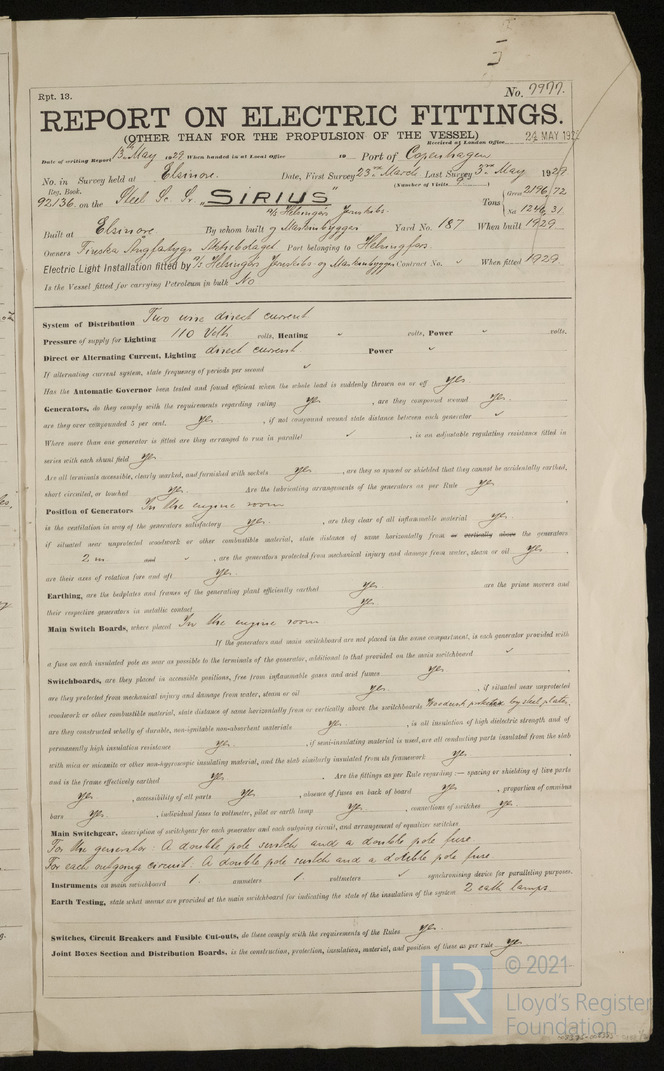 Rpt. 13.
No. 7977.
REPORT ON ELECTRIC FITTINGS.
(OTHER THAN FOR THE PROPULSION OF THE VESSEL)
Received at London Office 24 MAY 192
Date of writing Report 13th May 1929 When handed in at Local Office 19 Port of Copenhagen
No. in Survey held at Elsinore. Date, First Survey 23rd March Last Survey 3rd May 1929
Reg. Book. (Number of Visits )
92136. on the Steel S. S. "SIRIUS" Tons Gross 2196,72 Net 1246,31
Built at Elsinore By whom built A/S Helsingörs Jernskibs- og Maskinbyggeri Yard No. 187 When built 1929
Owners Finska Ångfartygs Aktiebolaget Port belonging to Helsingfors.
Electric Light Installation fitted by A/S Helsingörs Jernskibs og Maskinbyggeri Contract No. When fitted 1929
Is the Vessel fitted for carrying Petroleum in bulk No
System of Distribution Two wire direct current
Pressure of supply for Lighting 110 Volts volts, Heating volts, Power volts.
Direct or Alternating Current, Lighting direct current Power
If alternating current system, state frequency of periods per second
Has the Automatic Governor been tested and found efficient when the whole load is suddenly thrown on or off yes
Generators, do they comply with the requirements regarding rating yes, are they compound wound yes.
are they over compounded 5 per cent. yes, if not compound wound state distance between each generator
Where more than one generator is fitted are they arranged to run in parallel, is an adjustable regulating resistance fitted in
series with each shunt field yes
Are all terminals accessible, clearly marked, and furnished with sockets yes, are they so spaced or shielded that they cannot be accidentally earthed,
short circuited, or touched yes. Are the lubricating arrangements of the generators as per Rule yes
Position of Generators In the engine room
is the ventilation in way of the generators satisfactory yes, are they clear of all inflammable material yes.
if situated near unprotected woodwork or other combustible material, state distance of same horizontally from or vertically above the generators
2 m and, are the generators protected from mechanical injury and damage from water, steam or oil yes.
are their axes of rotation fore and aft yes.
Earthing, are the bedplates and frames of the generating plant efficiently earthed yes. are the prime movers and
their respective generators in metallic contact yes.
Main Switch Boards, where placed In the engine room
If the generators and main switchboard are not placed in the same compartment, is each generator provided with
a fuse on each insulated pole as near as possible to the terminals of the generator, additional to that provided on the main switchboard
Switchboards, are they placed in accessible positions, free from inflammable gases and acid fumes yes
are they protected from mechanical injury and damage from water, steam or oil yes., if situated near unprotected
woodwork or other combustible material, state distance of same horizontally from or vertically above the switchboards Woodwork protected by steel plates,
are they constructed wholly of durable, non-ignitable non-absorbent materials yes., is all insulation of high dielectric strength and of
permanently high insulation resistance yes., if semi-insulating material is used, are all conducting parts insulated from the slab
with mica or micanite or other non-hygroscopic insulating material, and the slab similarly insulated from its framework yes.
and is the frame effectively earthed yes. Are the fittings as per Rule regarding:— spacing or shielding of live parts
yes., accessibility of all parts yes., absence of fuses on back of board yes, proportion of omnibus
bars yes., individual fuses to voltmeter, pilot or earth lamp yes, connections of switches yes.
Main Switchgear, description of switchgear for each generator and each outgoing circuit, and arrangement of equalizer switches
For the generator: A double pole switch and a double pole fuse.
For each outgoing circuit: A double pole switch and a double pole fuse
Instruments on main switchboard 1. ammeters 1. voltmeters synchronising device for paralleling purposes.
Earth Testing, state what means are provided at the main switchboard for indicating the state of the insulation of the system 2 earth lamps.
Switches, Circuit Breakers and Fusible Cut-outs, do these comply with the requirements of the Rules yes.
Joint Boxes Section and Distribution Boards, is the construction, protection, insulation, material, and position of these as per rule yes
LR
© 2021
Lloyd's Register
Foundation